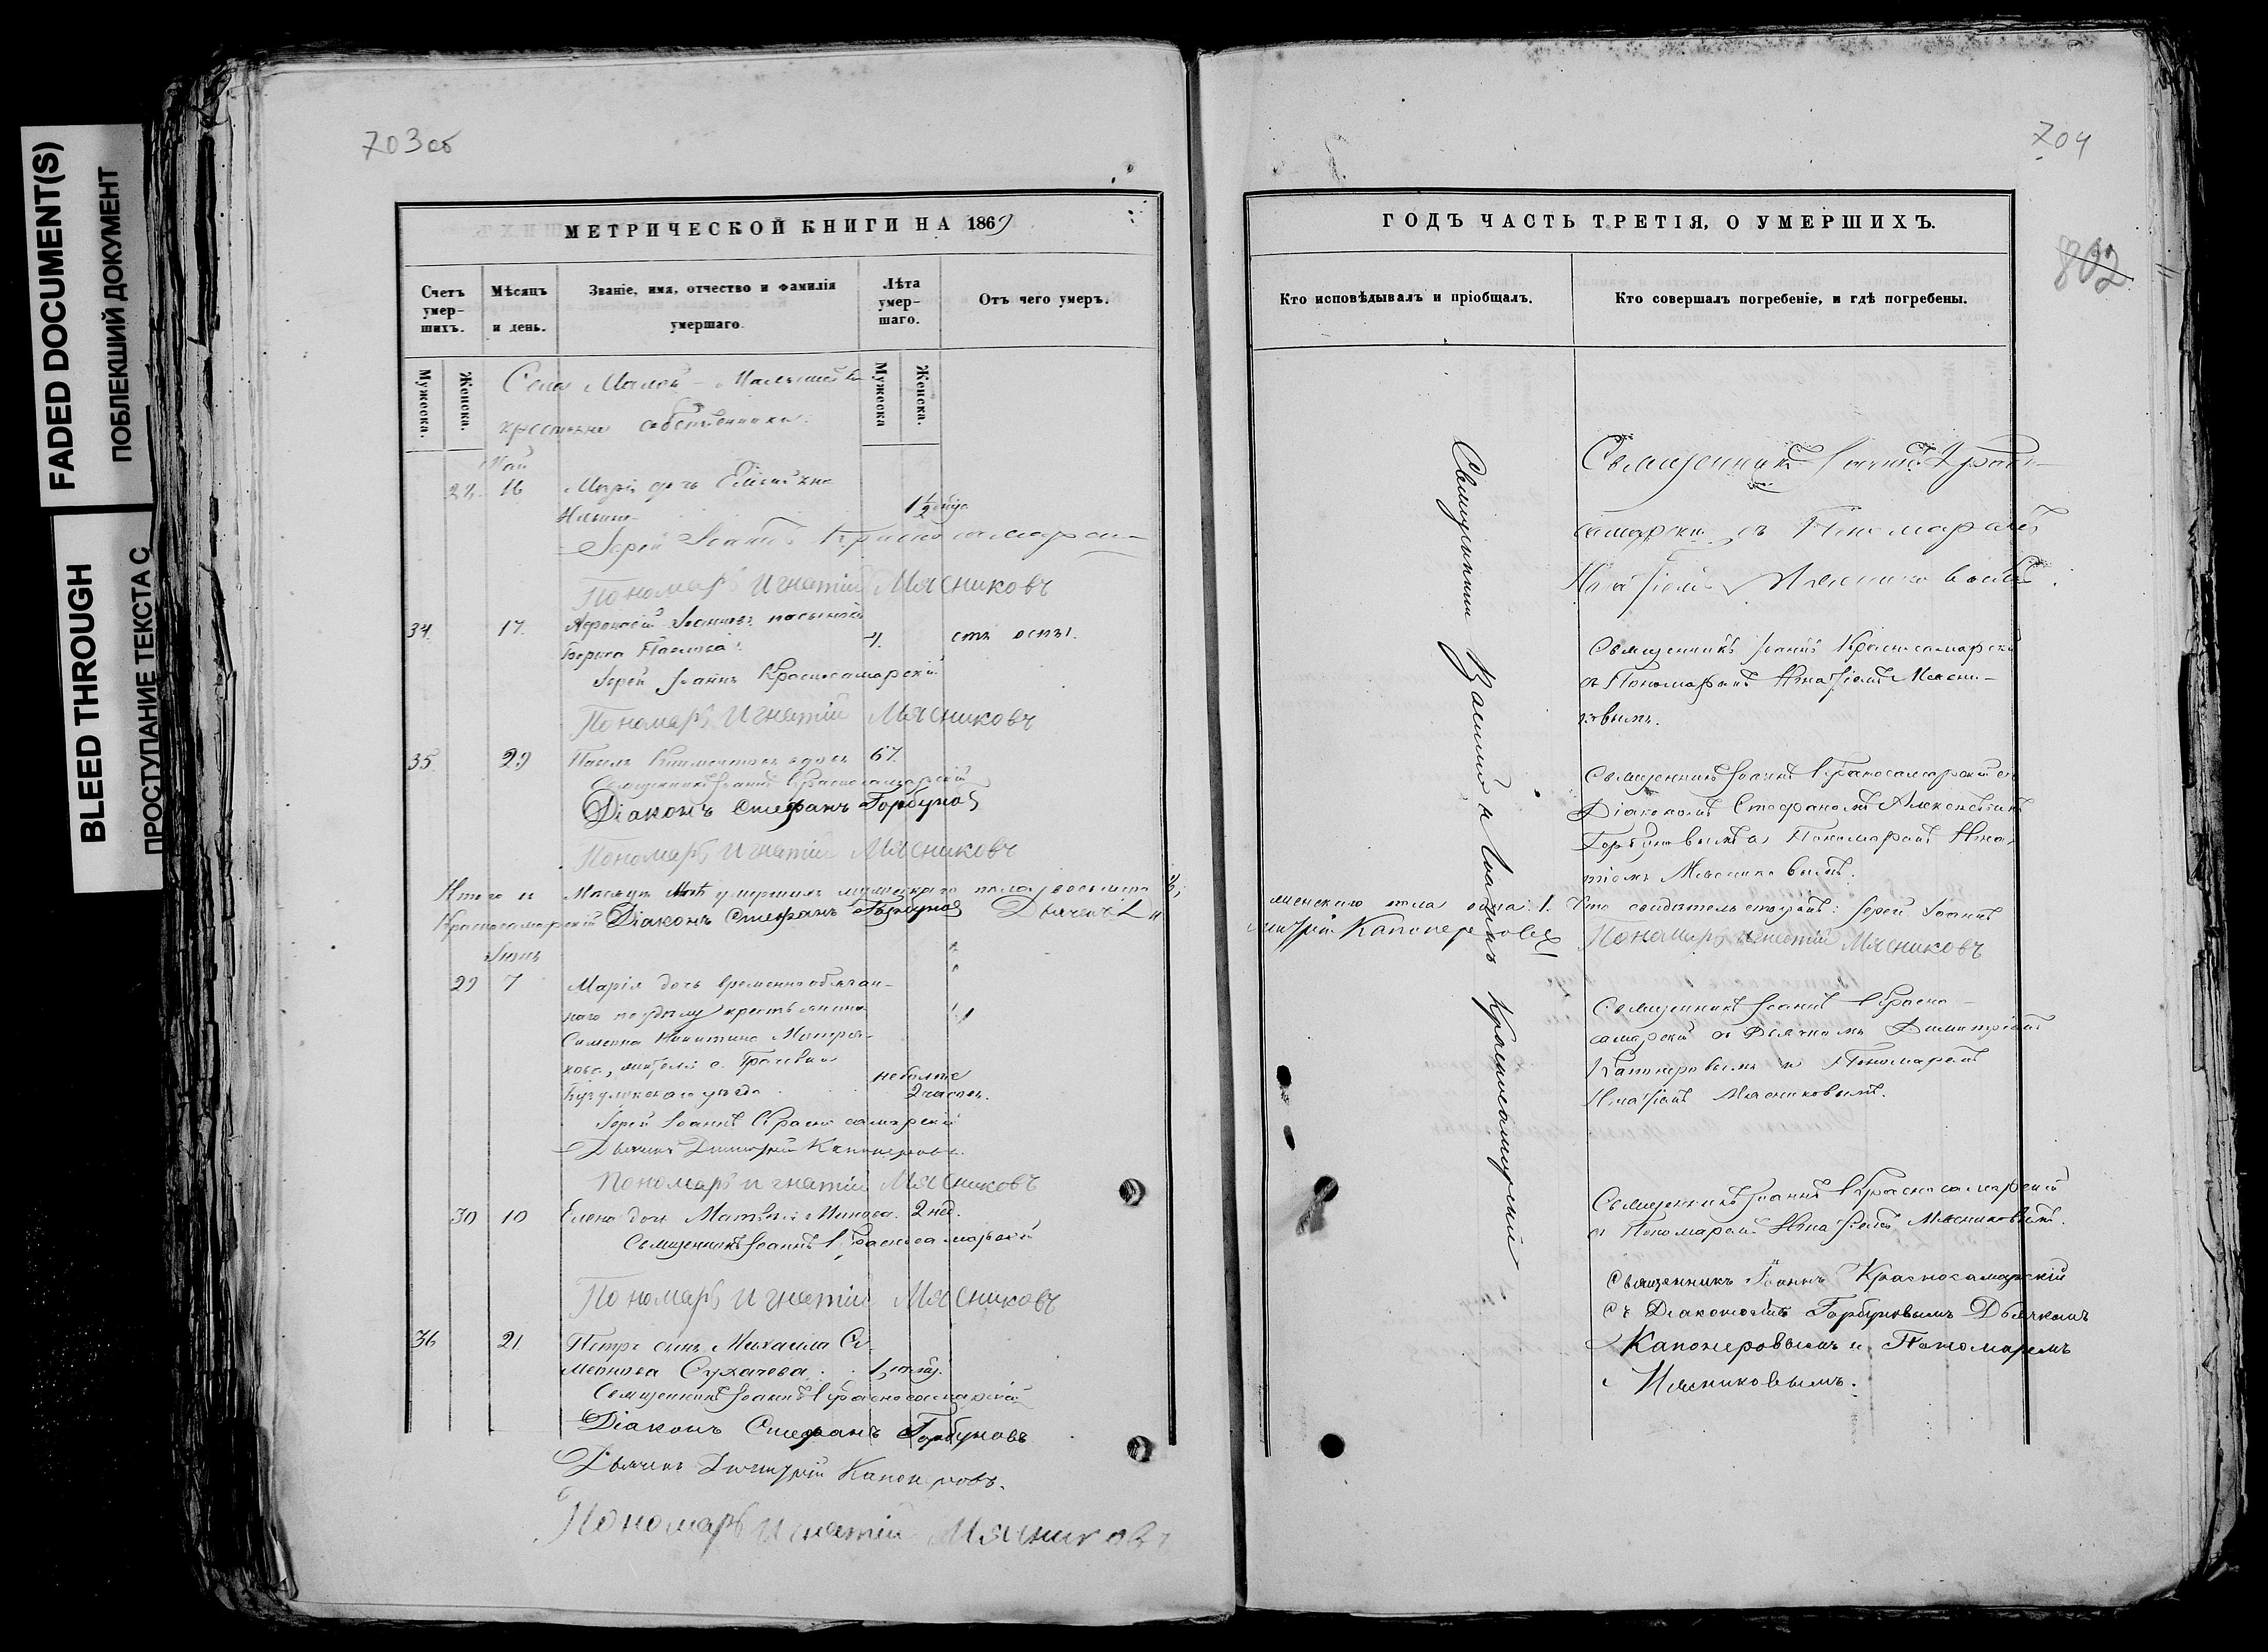 FADED DOCUMENT(S)
ПОБЛЕКШИЙ ДОКУМЕНТ
BLEED THROUGH
ПРОСТУПАНИЕ ТЕКСТА С
703об
МЕТРИЧЕСКОЙ КНИГИ НА 1869
Счетъ умер-шихъ.
Мѣсяцъ и день.
Званіе, имя, отчество и фамилія умершаго.
Лѣта умер-шаго.
Отъ чего умеръ.
Мужеска.
Женска.
Мужеска
Женска.
Села Малой-Малышевки
крестьяне собственники:
Май
16 Марія дочь
1½ года
Іерей Іоаннъ Красносамарскій
Пономарь Игнатій Мясниковъ
34. 17. Іоанновъ пасынокъ
4. отъ оспы.
Іерей Іоаннъ Красносамарскій
Пономарь Игнатій Мясниковъ
35 29 67.
Священникъ Іоаннъ Красносамарскій
Діаконъ Стефанъ Горбуновъ
Пономарь Игнатій Мясниковъ
Итого въ Маѣ умершихъ мужескаго пола
Красносамарскій Діаконъ Стефанъ Горбуновъ Дьячекъ
Іюнь
29 7 Марія дочь временнообязан-
наго крестьянина
Симеона Никитина
Бузулукскаго уѣзда
не болѣе 2 часовъ.
Іерей Іоаннъ Красносамарскій
Дьячекъ Димитрій Капонеровъ.
Пономарь Игнатій Мясниковъ
30 10 Елена дочь Матвѣя 2 нед.
Священникъ Іоаннъ Красносамарскій
Пономарь Игнатій Мясниковъ
36 21 Петръ сынъ Михаила Си-
меонова Сухачева.
Священникъ Іоаннъ Красносамарскій
Діаконъ Стефанъ Горбуновъ
Дьячекъ Димитрій Капонеровъ.
Пономарь Игнатій Мясниковъ
704
802
ГОДЪ ЧАСТЬ ТРЕТІЯ, О УМЕРШИХЪ.
Кто исповѣдывалъ и пріобщалъ.
Кто совершалъ погребеніе, и гдѣ погребены.
Священникъ Іоаннъ Красно-
самарскій съ Пономаремъ
Игнатіемъ Мясниковымъ.
Священникъ Іоаннъ Красносамарскій
съ Пономаремъ Игнатіемъ Мясни-
ковымъ.
Священникъ Іоаннъ Красносамарскій съ
Діакономъ Стефаномъ Алексѣевымъ
Горбуновымъ и Пономаремъ Игна-
тіемъ Мясниковымъ.
женскаго пола одна: 1. Іерей Іоаннъ
Капонеровъ Пономарь Игнатій Мясниковъ
Священникъ Іоаннъ Красно-
самарскій съ Дьячкомъ Димитріемъ
Капонеровымъ и Пономаремъ
Игнатіемъ Мясниковымъ.
Священникъ Іоаннъ Красносамарскій
съ Пономаремъ Игнатіемъ Мясниковымъ.
Священникъ Іоаннъ Красносамарскій
съ Діакономъ Горбуновымъ Дьячкомъ
Капонеровымъ и Пономаремъ
Мясниковымъ.
Священники Василій и Іоаннъ Красносамарскій